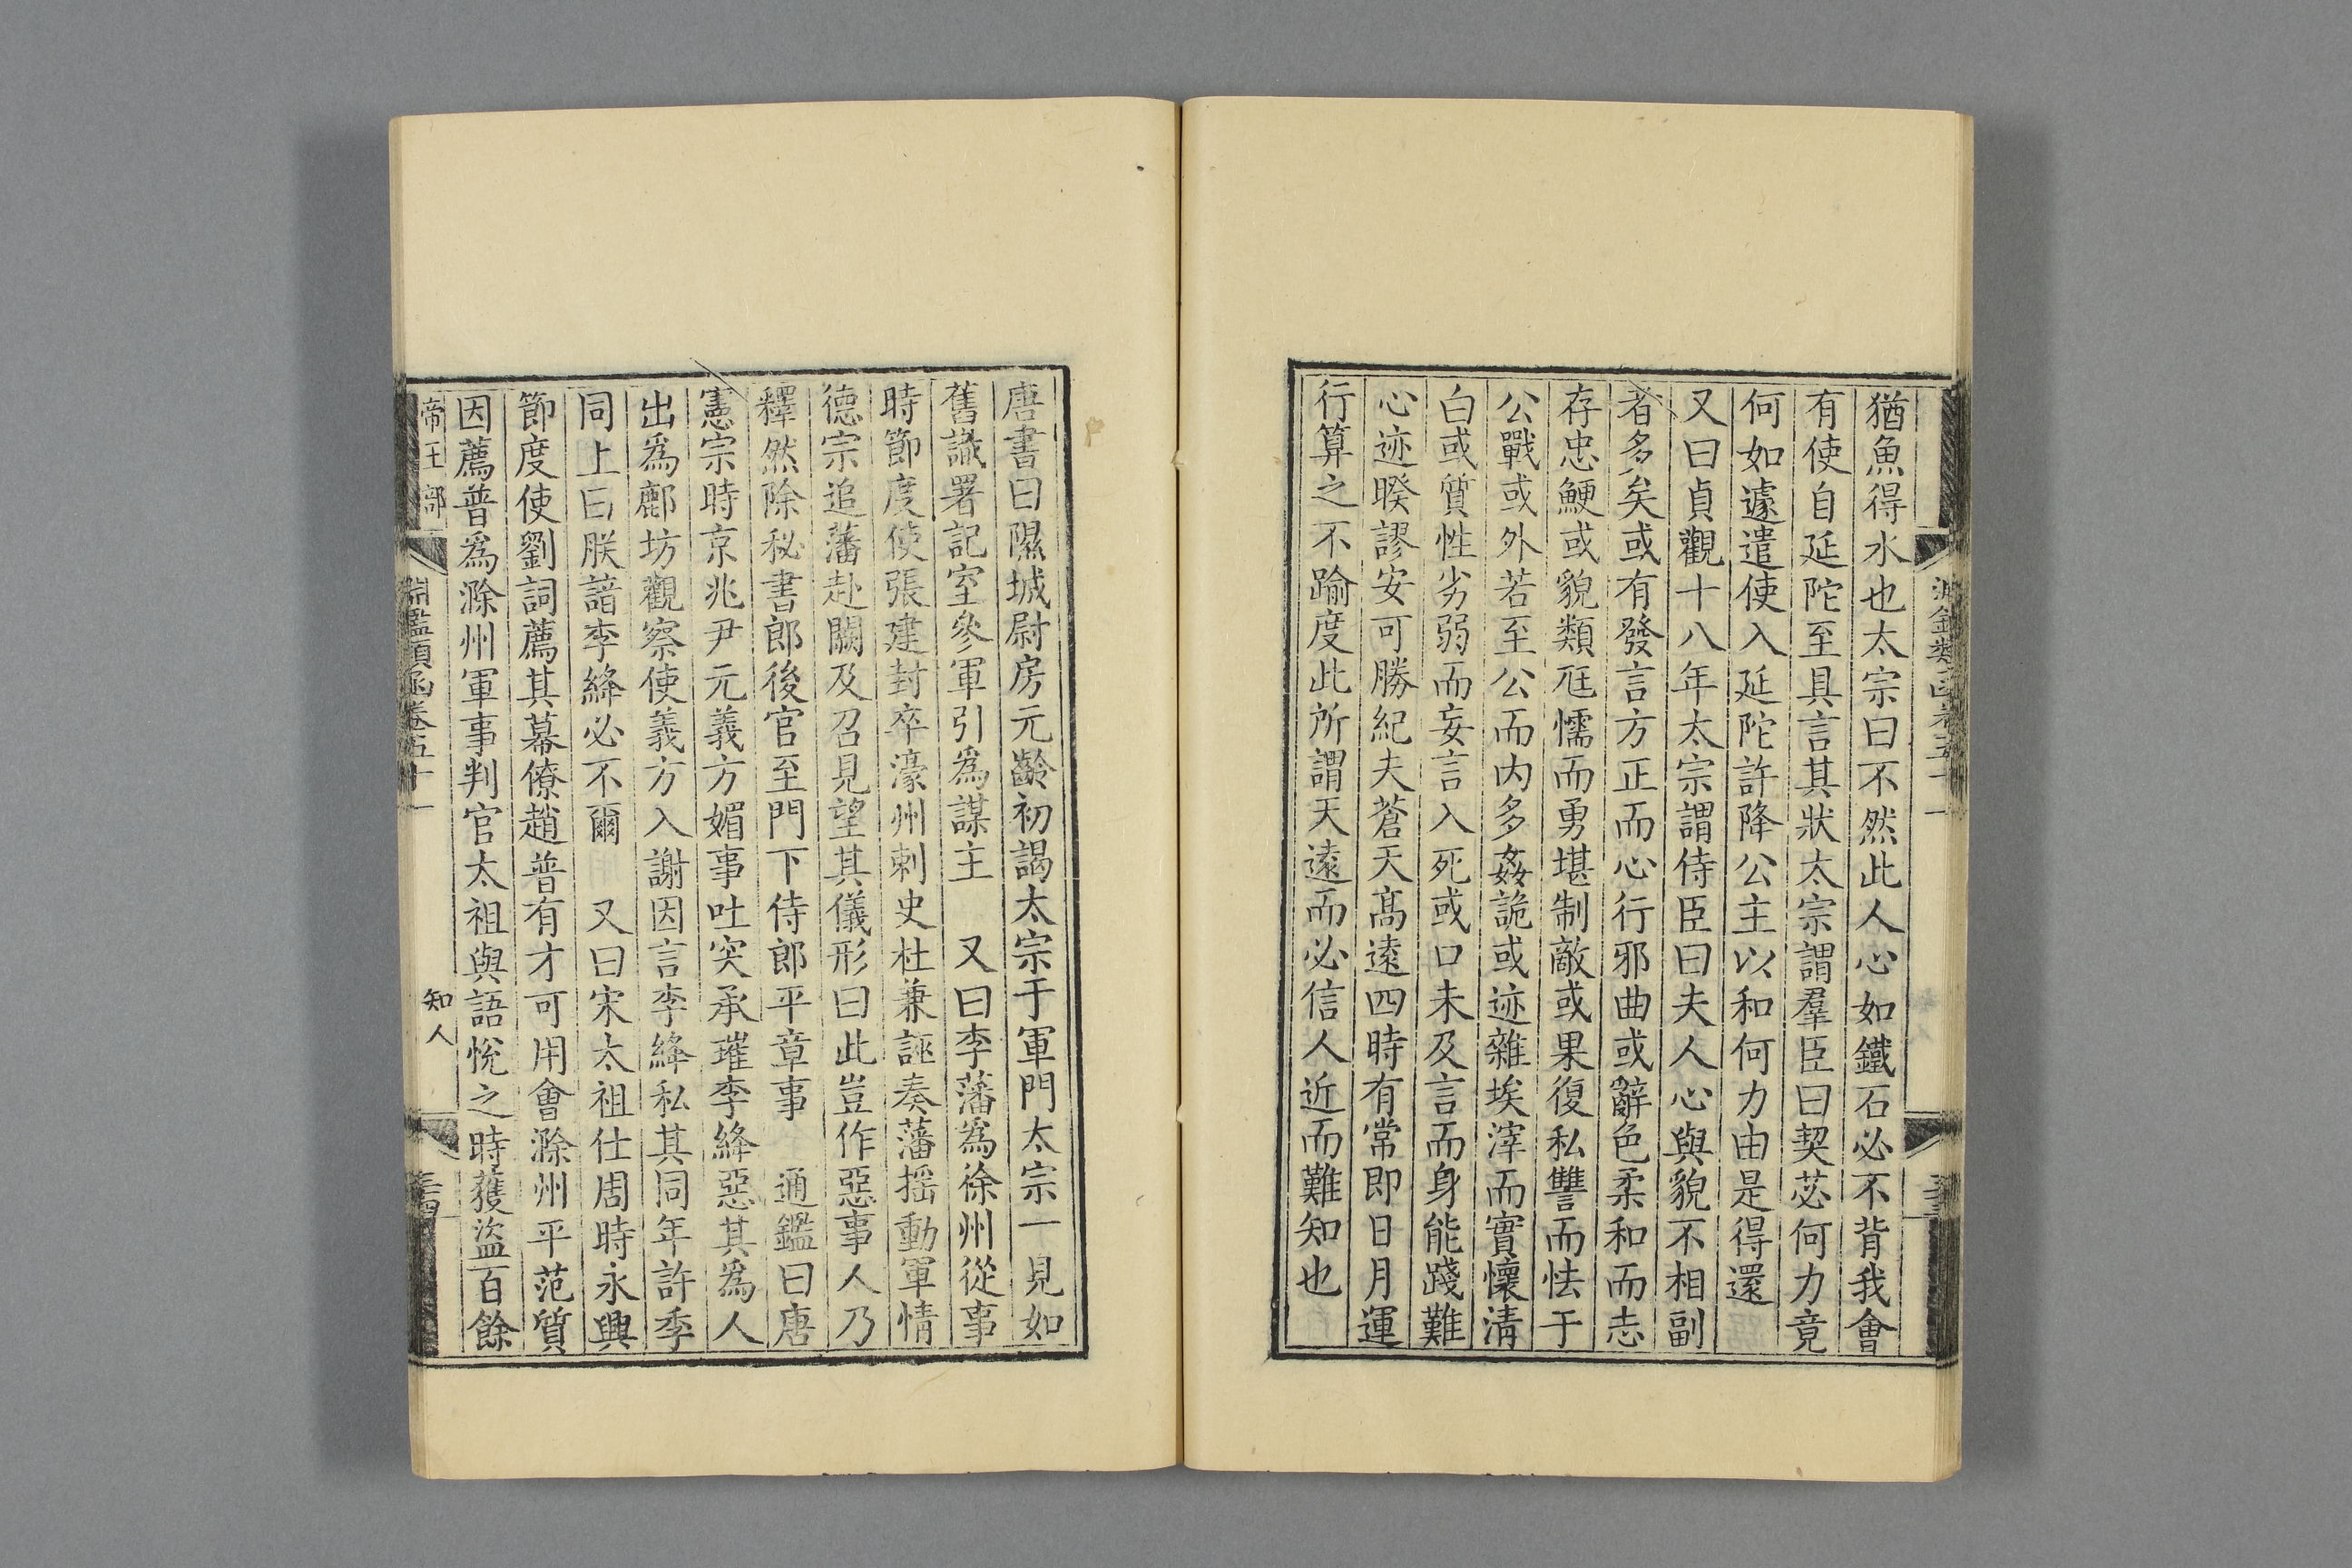 猶魚得水也太宗曰不然此人心如鐵石必不背我會
有使自延陀至具言其狀太宗謂羣臣曰契苾何力竟
何如遽遣使入延陀許降公主以和何力由是得還
又曰貞觀十八年太宗謂侍臣曰夫人心與貌不相副
者多矣或有發言方正而心行邪曲或辭色柔和而志
存忠鯁或貌類尫懦而勇堪制敵或果復私讐而怯于
公戰或外若至公而内多姦詭或迹雜埃滓而實懷清
白或質性劣弱而妄言入死或口未及言而身能踐難
心迹暌謬安可勝紀夫蒼天髙逺四時有常即日月運
行算之不踰度此所謂天逺而必信人近而難知也
唐書曰隰城尉房元齡初謁太宗于軍門太宗一見如
舊識署記室參軍引爲謀主 又曰李藩爲徐州從事
時節度使張建封卒濠州刺史杜兼誣奏藩摇動軍情
德宗追藩赴闕及召見望其儀形曰此豈作惡事人乃
釋然除秘書郎後官至門下侍郎平章事 通鑑曰唐
憲宗時京兆尹元義方媚事吐突承璀李絳惡其爲人
出爲鄜坊觀察使義方入謝因言李絳私其同年許季
同上曰朕諳李絳必不爾 又曰宋太祖仕周時永興
節度使劉詞薦其幕僚趙普有才可用會滁州平范質
因薦普爲滁州軍事判官太祖與語悅之時獲盜百餘
帝王部
淵鑑類函卷五十一
知人